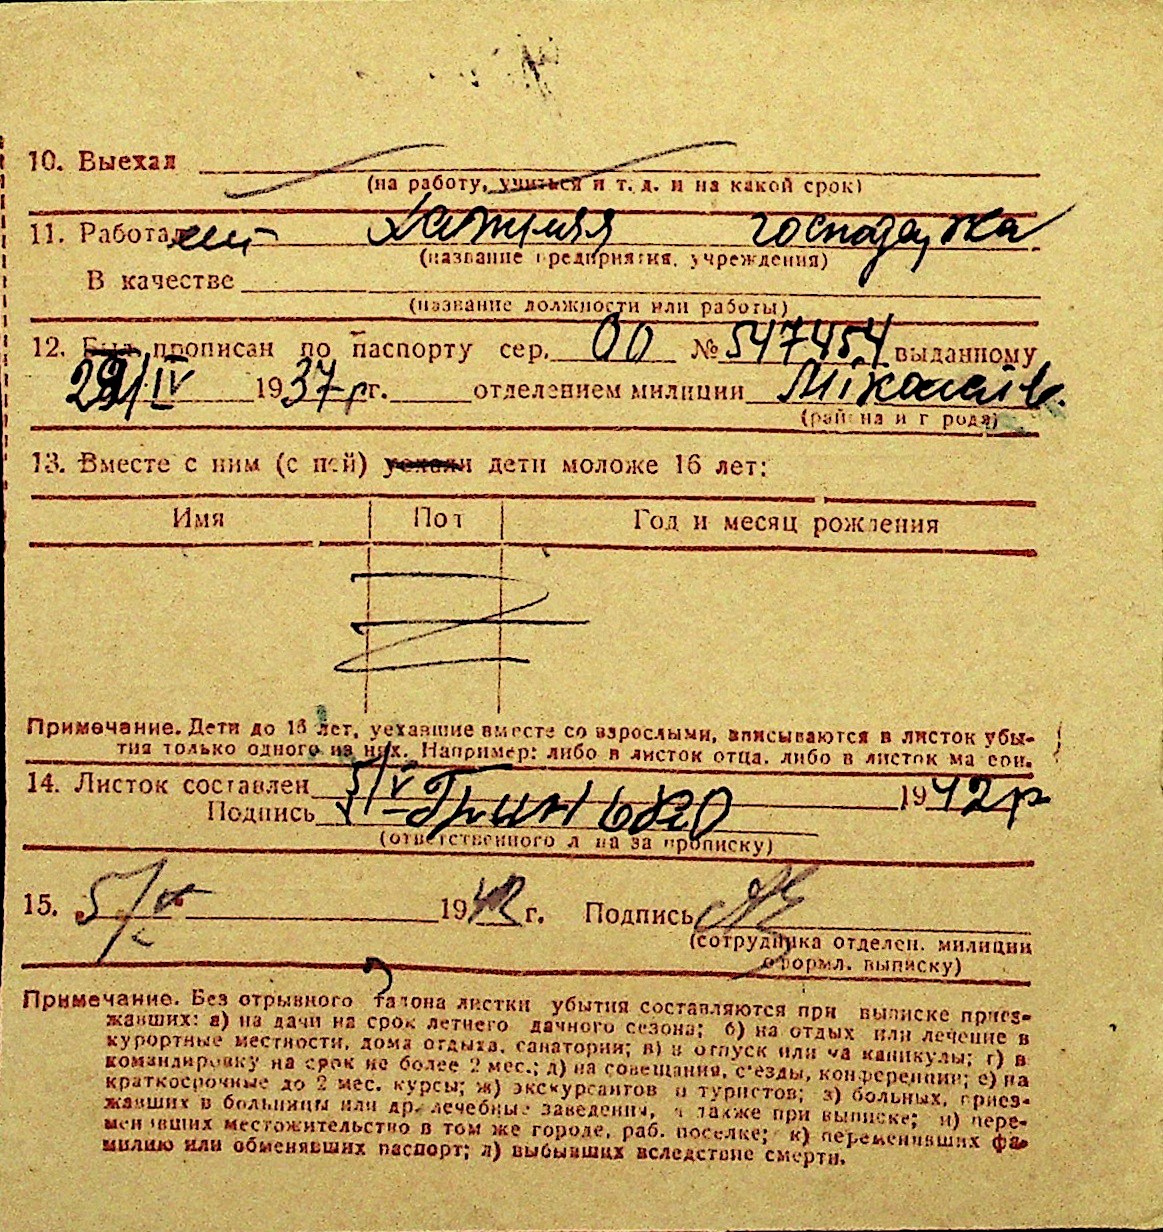 10. Выехал
(на работу, учиться и т. д. и на какой срок)
11. Работал Хатняя господарка
(название предприятия, учреждения)
В качестве
(название должности или работы)
12. Был прописан по паспорту сер. 00 № 547454 выданному
29/IV 1937 р г. отделением милиции Міколаїв.
(района и города)
13. Вместе с ним (с ней) уехали дети моложе 16 лет:
Имя Пол Год и месяц рождения
Примечание. Дети до 16 лет, уехавшие вместе со взрослыми, вписываются в листок убы-
тия только одного из них. Например: либо в листок отца, либо в листок матери.
14. Листок составлен 5/V 1942 р
Подпись Гринько
(ответственного лица за прописку)
15. 5/V 1942 г. Подпись
(сотрудника отделен. милиции
оформл. выписку)
Примечание. Без отрывного талона листки убытия составляются при выписке приез-
жавших: а) на дачи на срок летнего дачного сезона; б) на отдых или лечение в
курортные местности, дома отдыха, санатории; в) в отпуск или на каникулы; г) в
командировку на срок не более 2 мес.; д) на совещания, с'езды, конференции; е) на
краткосрочные до 2 мес. курсы; ж) экскурсантов и туристов; з) больных, приез-
жавших в больницы или др. лечебные заведения, а также при выписке; и) пере-
менивших местожительство в том же городе, раб. поселке; к) переменивших фа-
милию или обменявших паспорт; л) выбывших вследствие смерти.